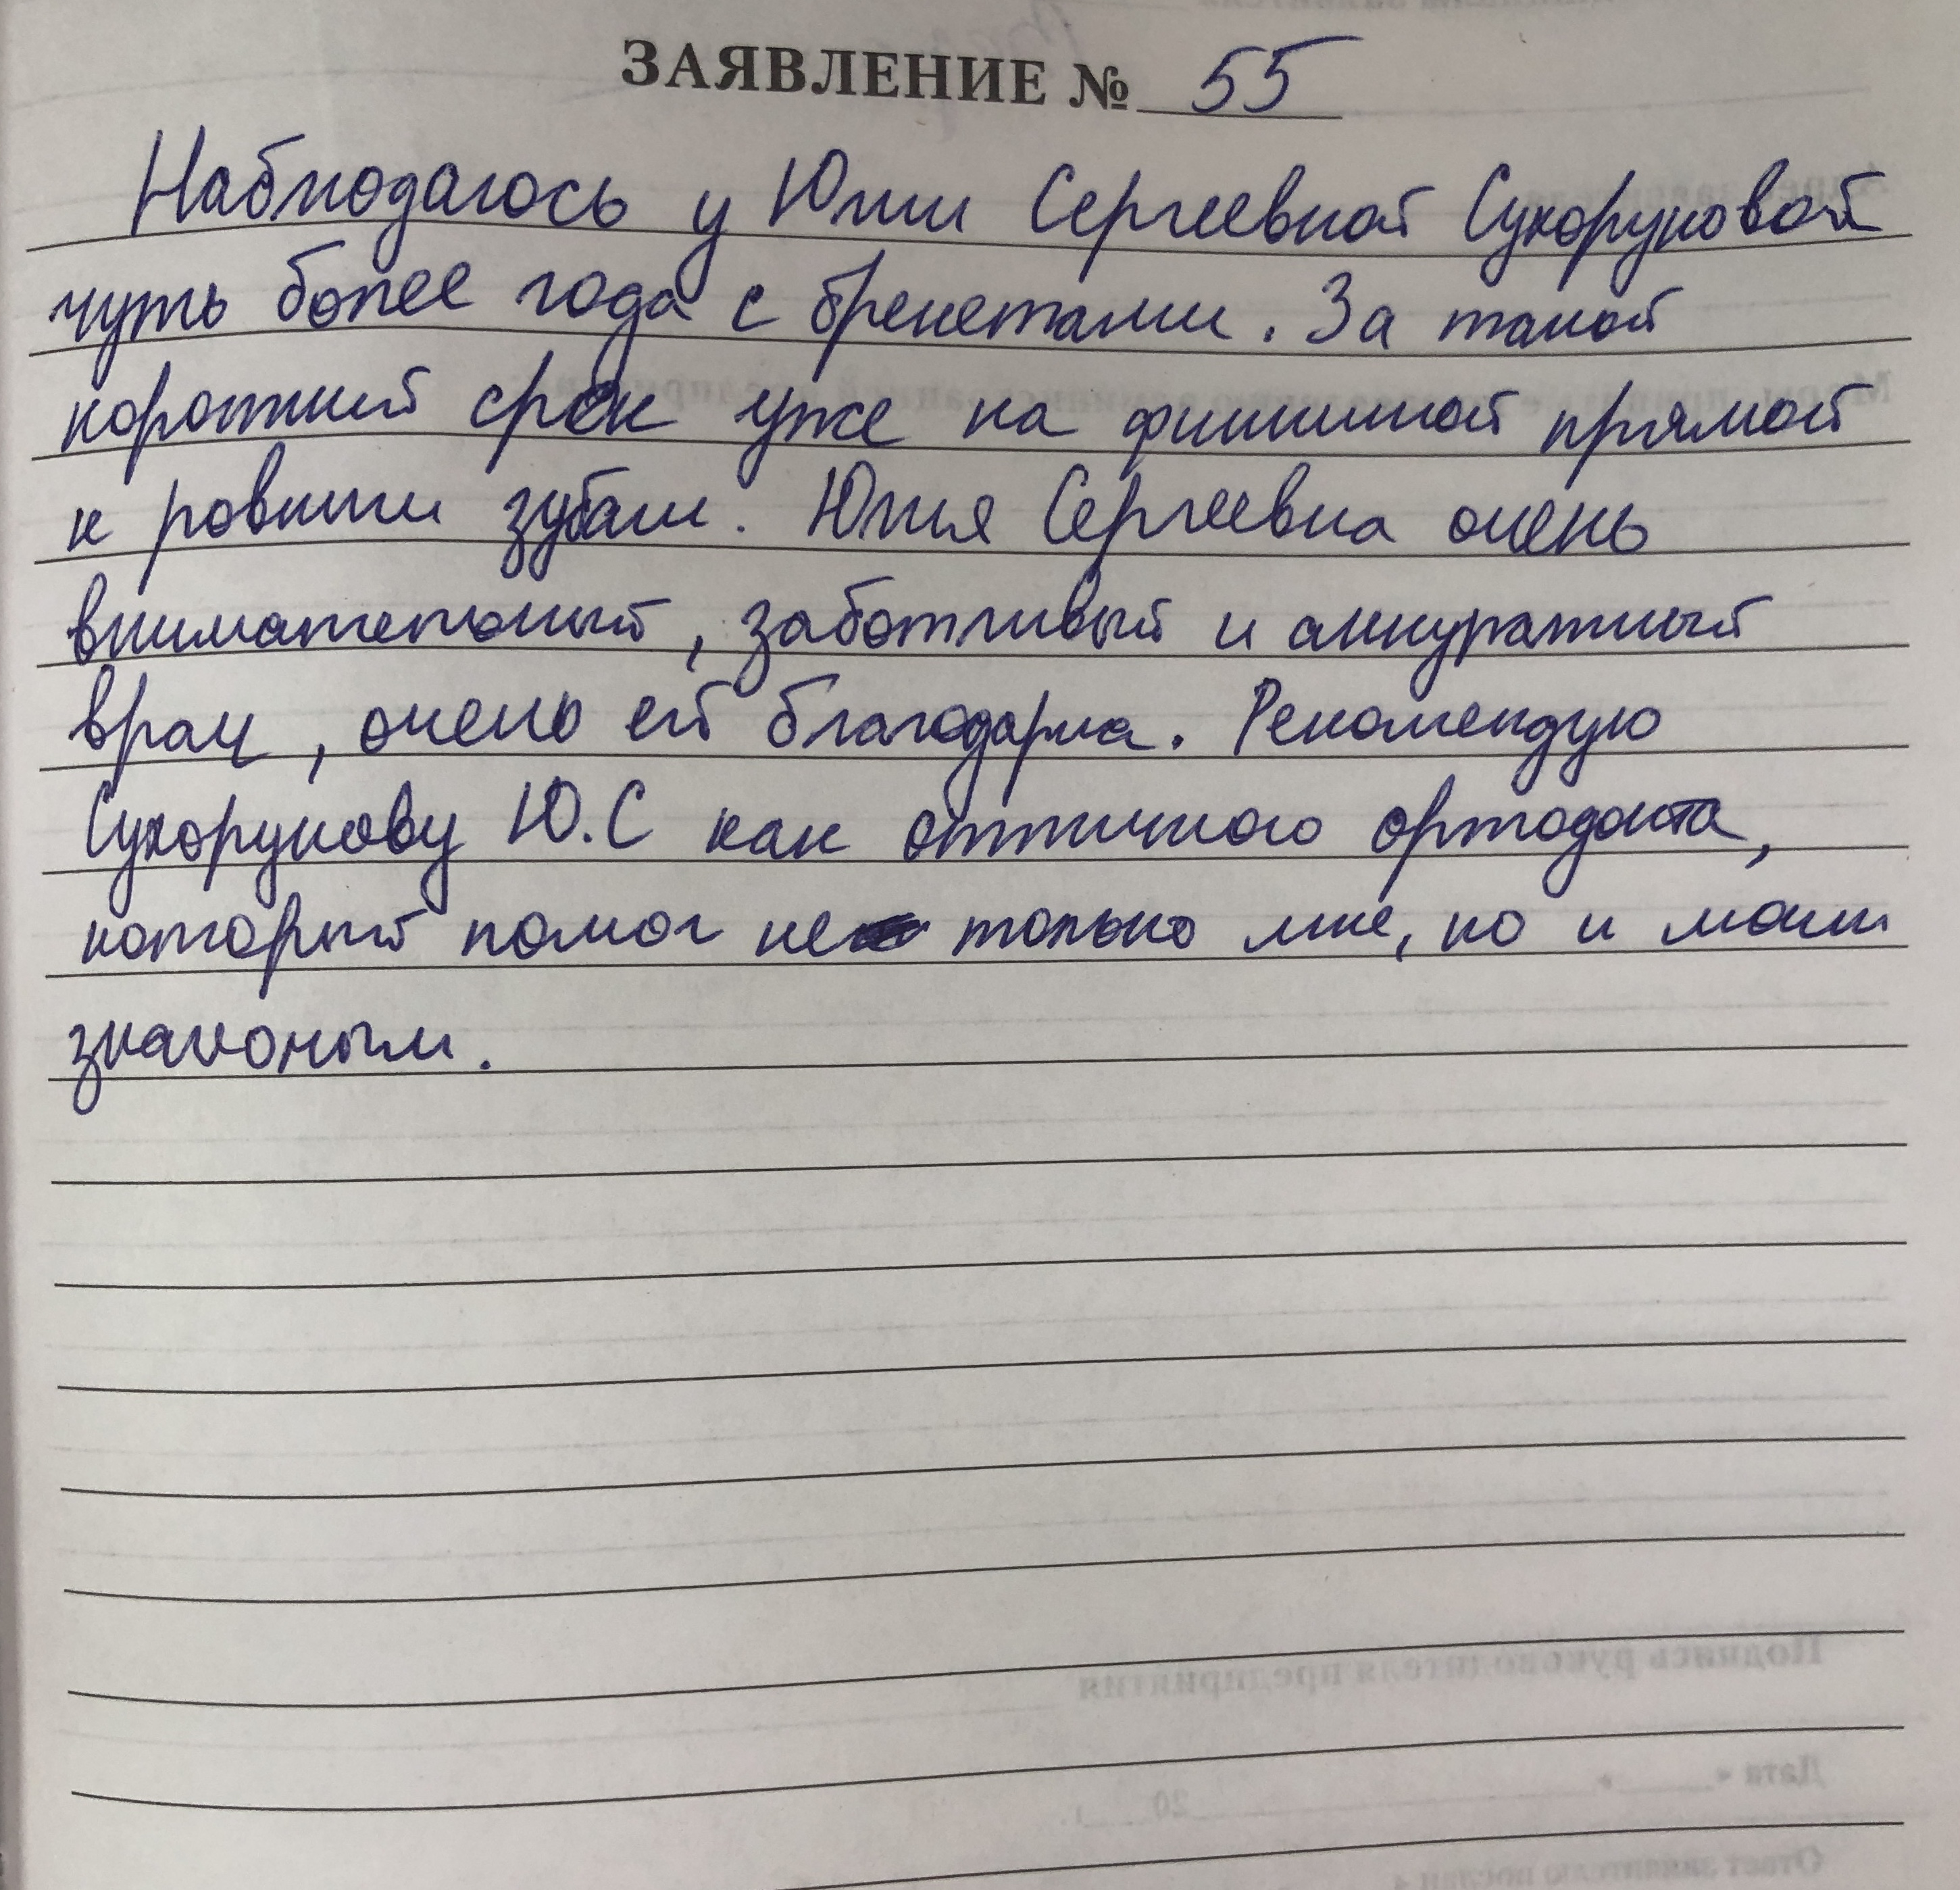 ЗАЯВЛЕНИЕ № 55
Наблюдаюсь у Юлии Сергеевной Сухоруковой
чуть более года с брекетами. За такой
короткий срок уже на финишной прямой
к ровным зубам. Юлия Сергеевна очень
внимательный, заботливый и аккуратный
врач, очень ей благодарна. Рекомендую
Сухорукову Ю.С как отличного ортодонта,
который помог не только мне, но и моим
знакомым.
Подпись руководителя предприятия
Дата « » 20 г.
Ответ заявителю послан «